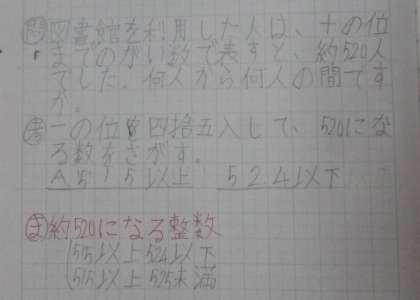 問 図書館を利用した人は、十の位
までのがい数で表すと、約520人
でした。何人から何人の間です
か。
考 一の位を四捨五入して、520にな
る数をさがす。
A 515以上 524以下
ま 約520になる整数
515以上524以下
515以上525未満